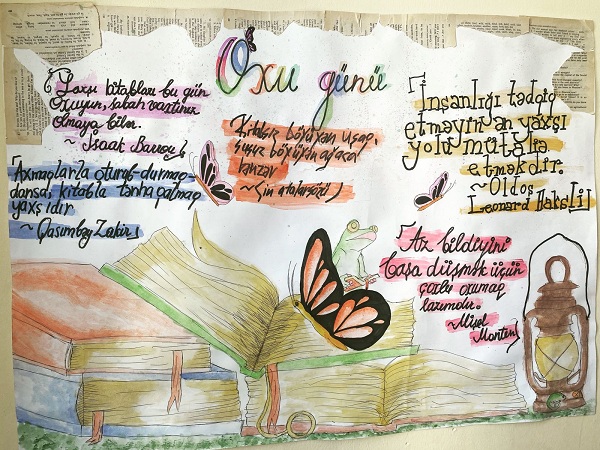 Oxu günü
Yaxşı kitabları bu gün
Oxuyun, sabah vaxtınız
olmaya bilər.
~ İsaak Barrou
Axmaqlarla oturub-durmaq-
dansa, kitabla tənha qalmaq
yaxşıdır
~Qasımbəy Zakir
Kitabsız böyüyən uşaq,
susuz böyüyən ağaca
bənzər
~Çin atalarsözü
İnsanlığı tədqiq
etməyin ən yaxşı
yolu mütaliə
etməkdir.
~Oldos
Leonard Haksli
Az bildiyini
başa düşmək üçün
çoxlu oxumaq
lazımdır.
~Mişel
Monten